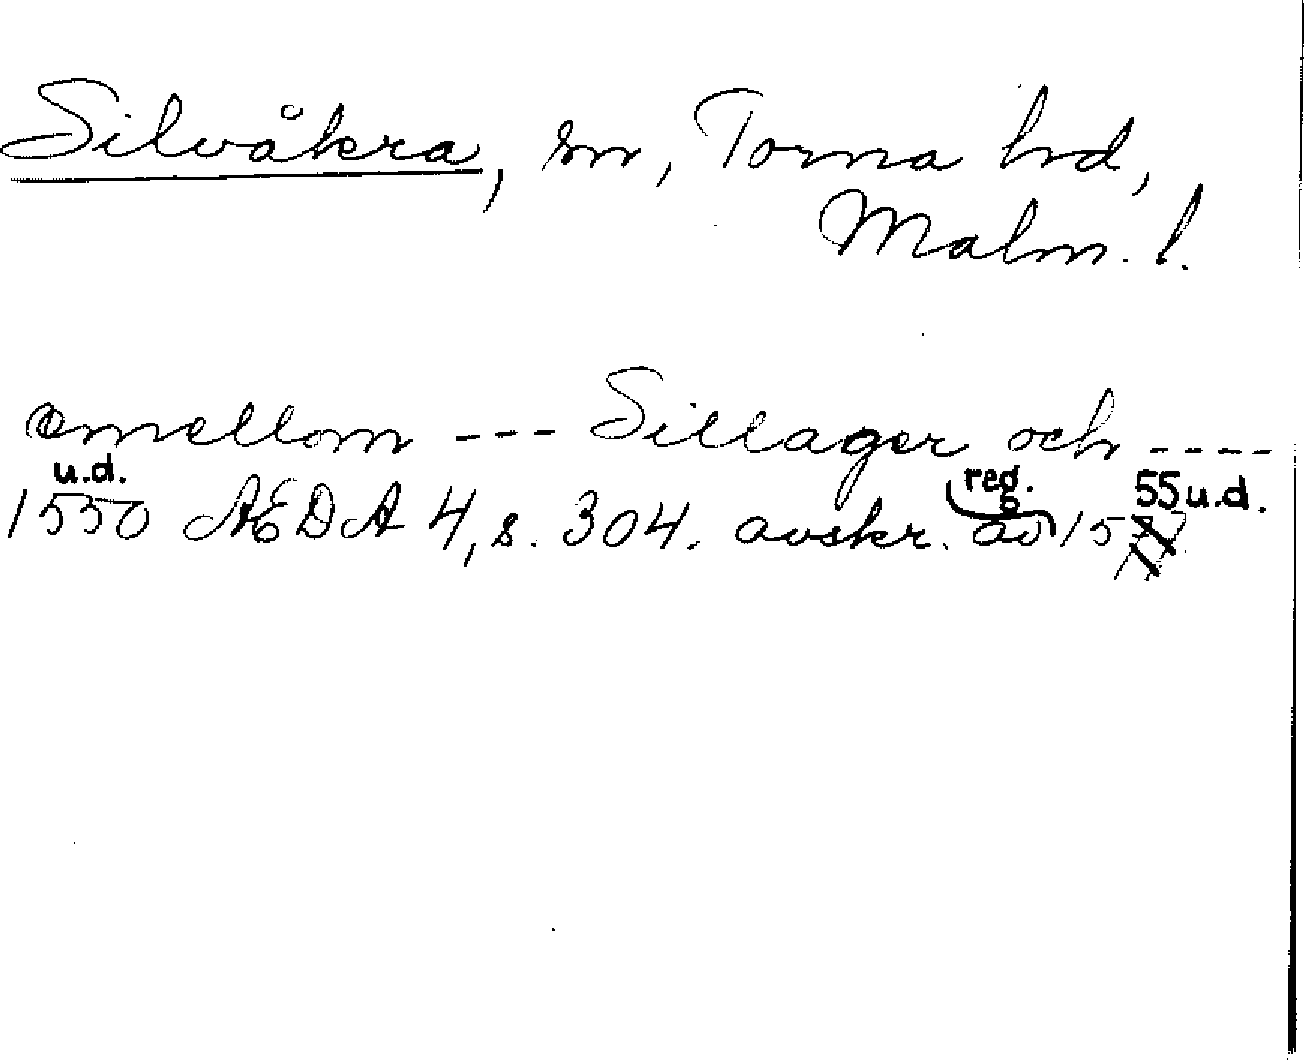 Silvåkra, sn, Torna hd,
Malm. l.
emellom --- Sillager och ----
u.d. reg. 55 u.d.
1550 AEDA 4, s. 304. avskr. av 15